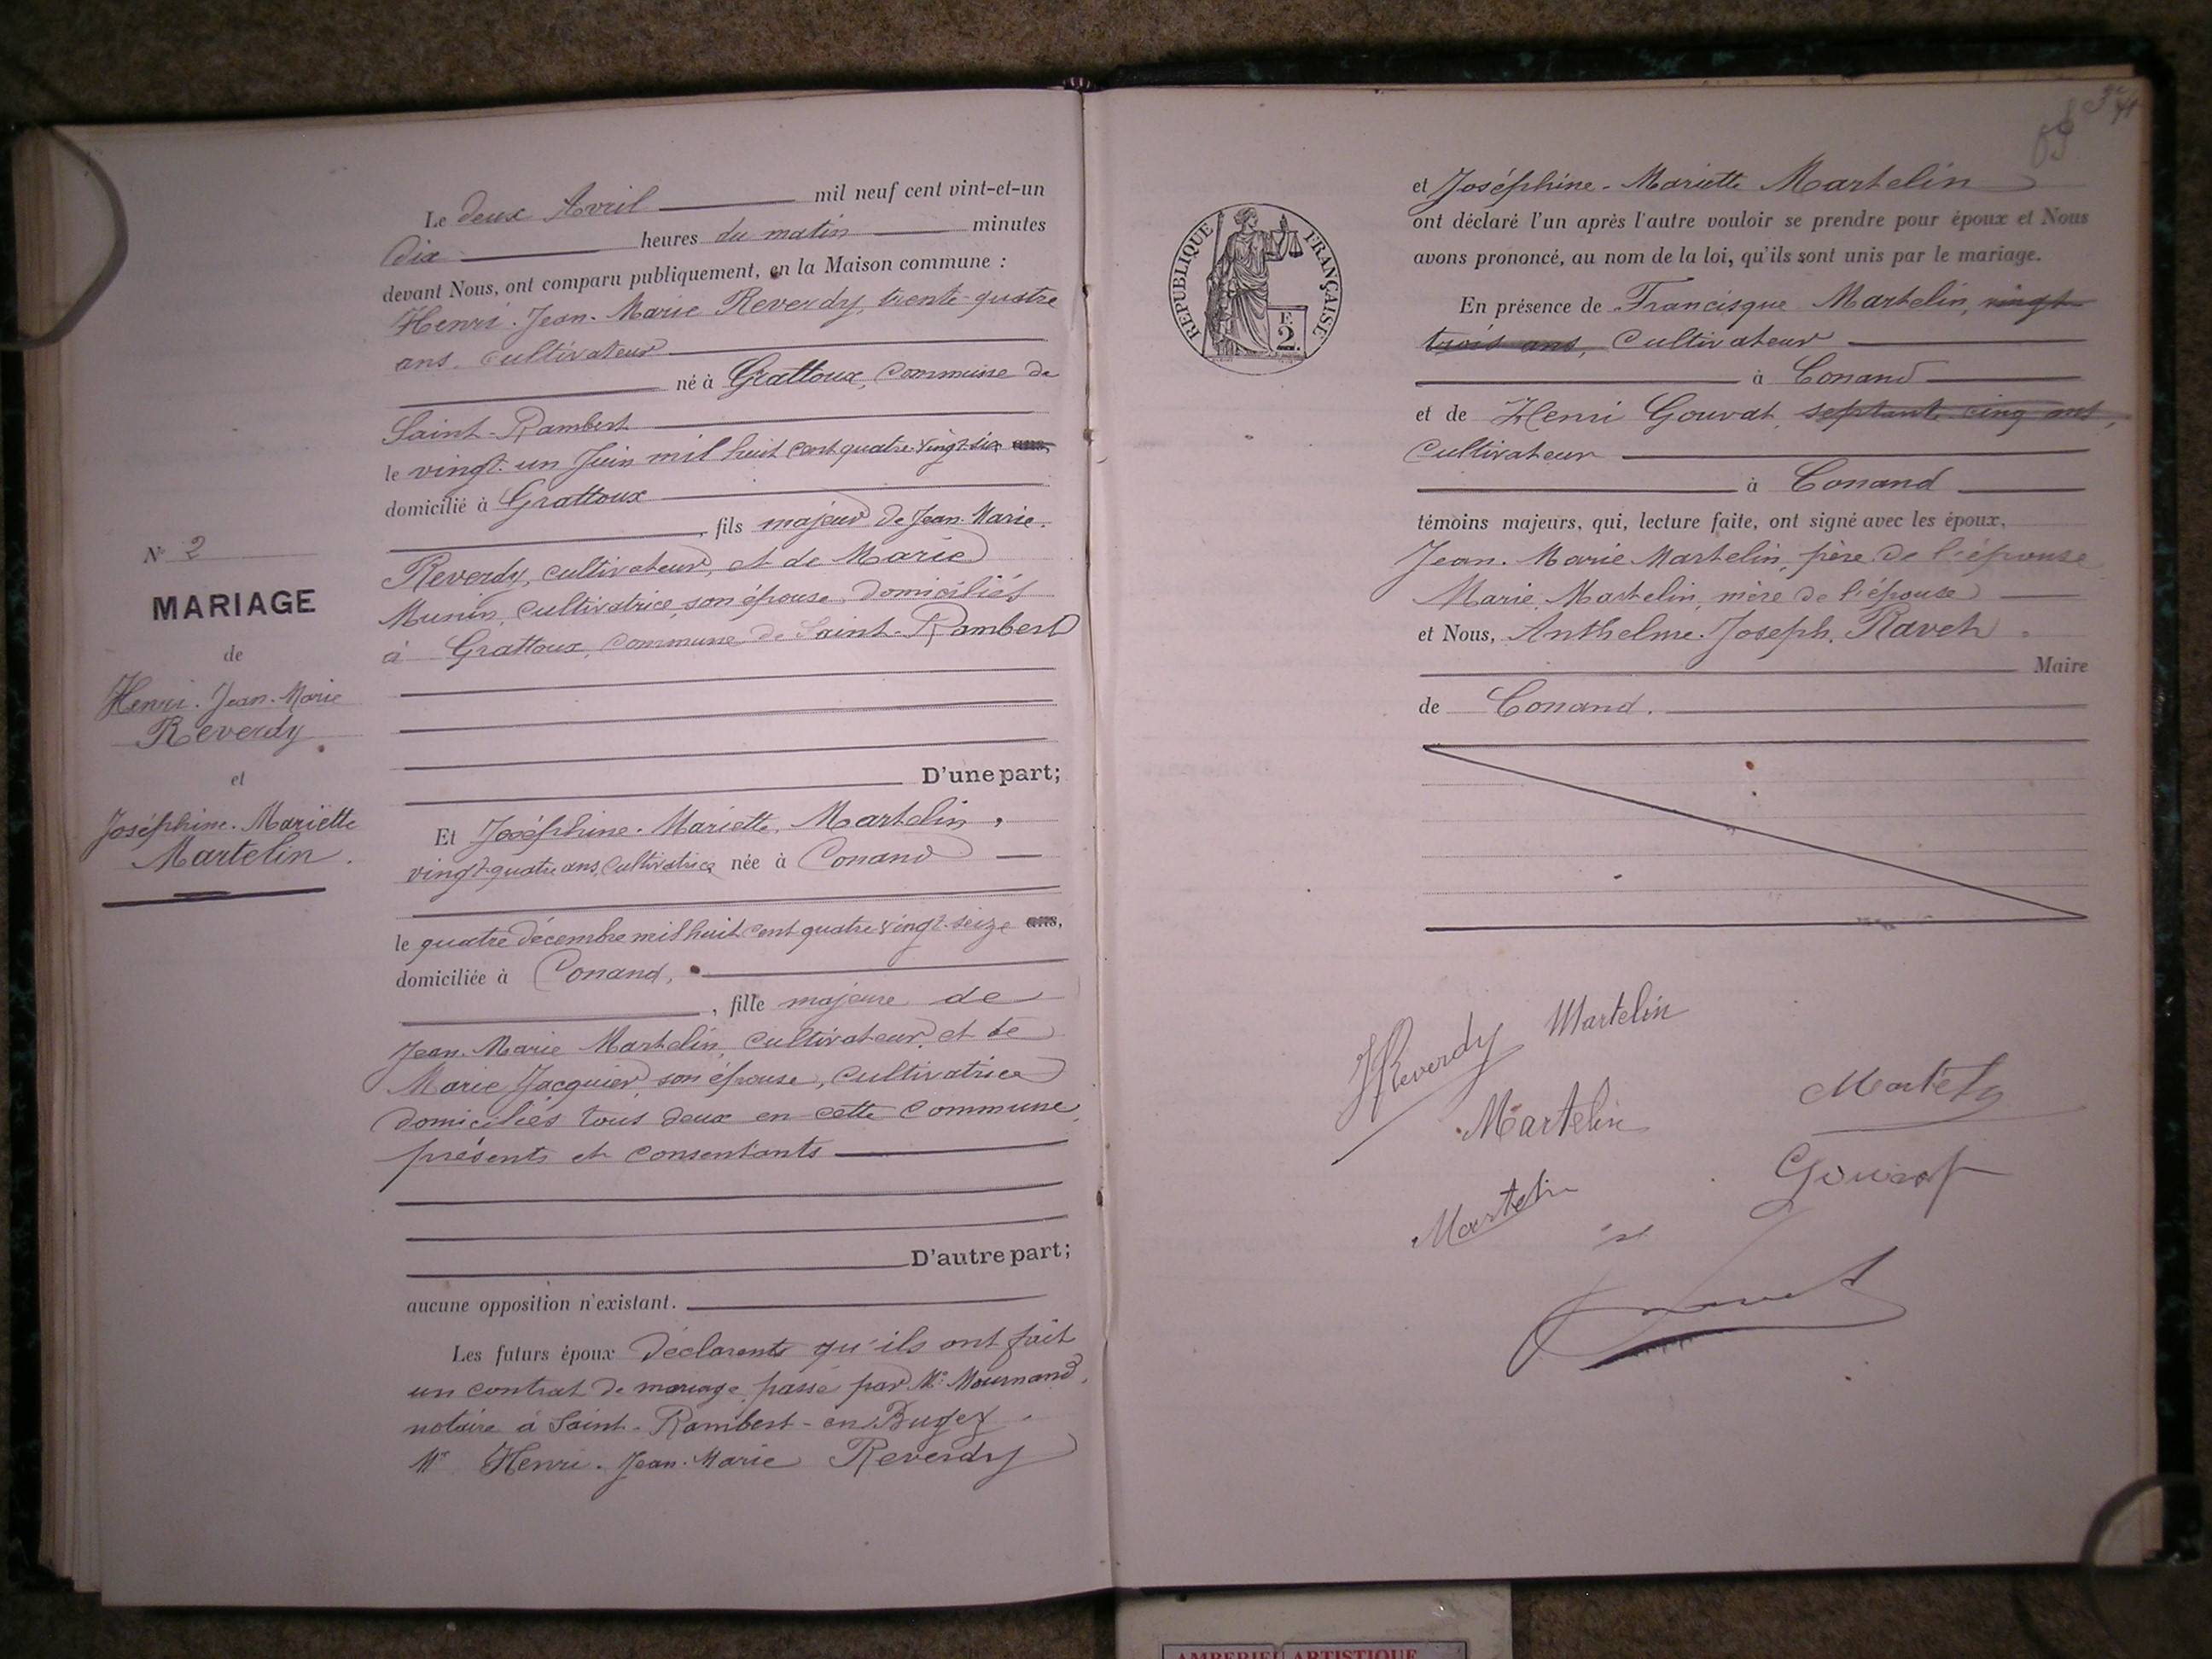 Le deux Avril mil neuf cent vint-et-un
Dix heures du matin minutes
devant Nous, ont comparu publiquement, en la Maison commune :
Henri. Jean. Marie Reverdy, trente-quatre
ans. Cultivateur
né à Grattoux, Commune de
Saint-Rambert
le vingt-un Juin mil huit cent quatre-vingt-six ans
domicilié à Grattoux
, fils majeur de Jean-Marie.
Reverdy, cultivateur, et de Marie
Munin, cultivatrice, son épouse, domiciliés
à Grattoux, commune de Saint-Rambert
D'une part;
Et Joséphine-Mariette, Martelin,
vingt-quatre ans, Cultivatrice née à Conand
le quatre décembre mil huit cent quatre vingt-seize ans,
domiciliée à Conand,
, fille majeure de
Jean-Marie Martelin, Cultivateur, et de
Marie Jacquier, son épouse, cultivatrice
domiciliés tous deux en cette Commune,
présents et consentants
D'autre part;
aucune opposition n'existant.
Les futurs époux déclarents qu'ils ont fait
un contrat de mariage passé par Me Mournand,
notaire à Saint-Rambert-en-Bugey.
Mr Henri. Jean. Marie Reverdy
No 2
MARIAGE
de
Henri. Jean-Marie
Reverdy
et
Joséphine-Mariette
Martelin.
RÉPUBLIQUE FRANÇAISE
F.
2.
et Joséphine-Mariette Martelin
ont déclaré l'un après l'autre vouloir se prendre pour époux et Nous
avons prononcé, au nom de la loi, qu'ils sont unis par le mariage.
En présence de Francisque Martelin, vingt
trois ans, Cultivateur
à Conand
et de Henri Gouvat, septante cinq ans,
Cultivateur
à Conand
témoins majeurs, qui, lecture faite, ont signé avec les époux,
Jean-Marie Martelin, père de l'épouse
Marie Martelin, mère de l'épouse
et Nous, Anthelme-Joseph, Ravet
Maire
de Conand.
HReverdy Martelin
Martelin
Martelin
Martelin
Gouvat
Ravet
AMBERIEU ARTISTIQUE